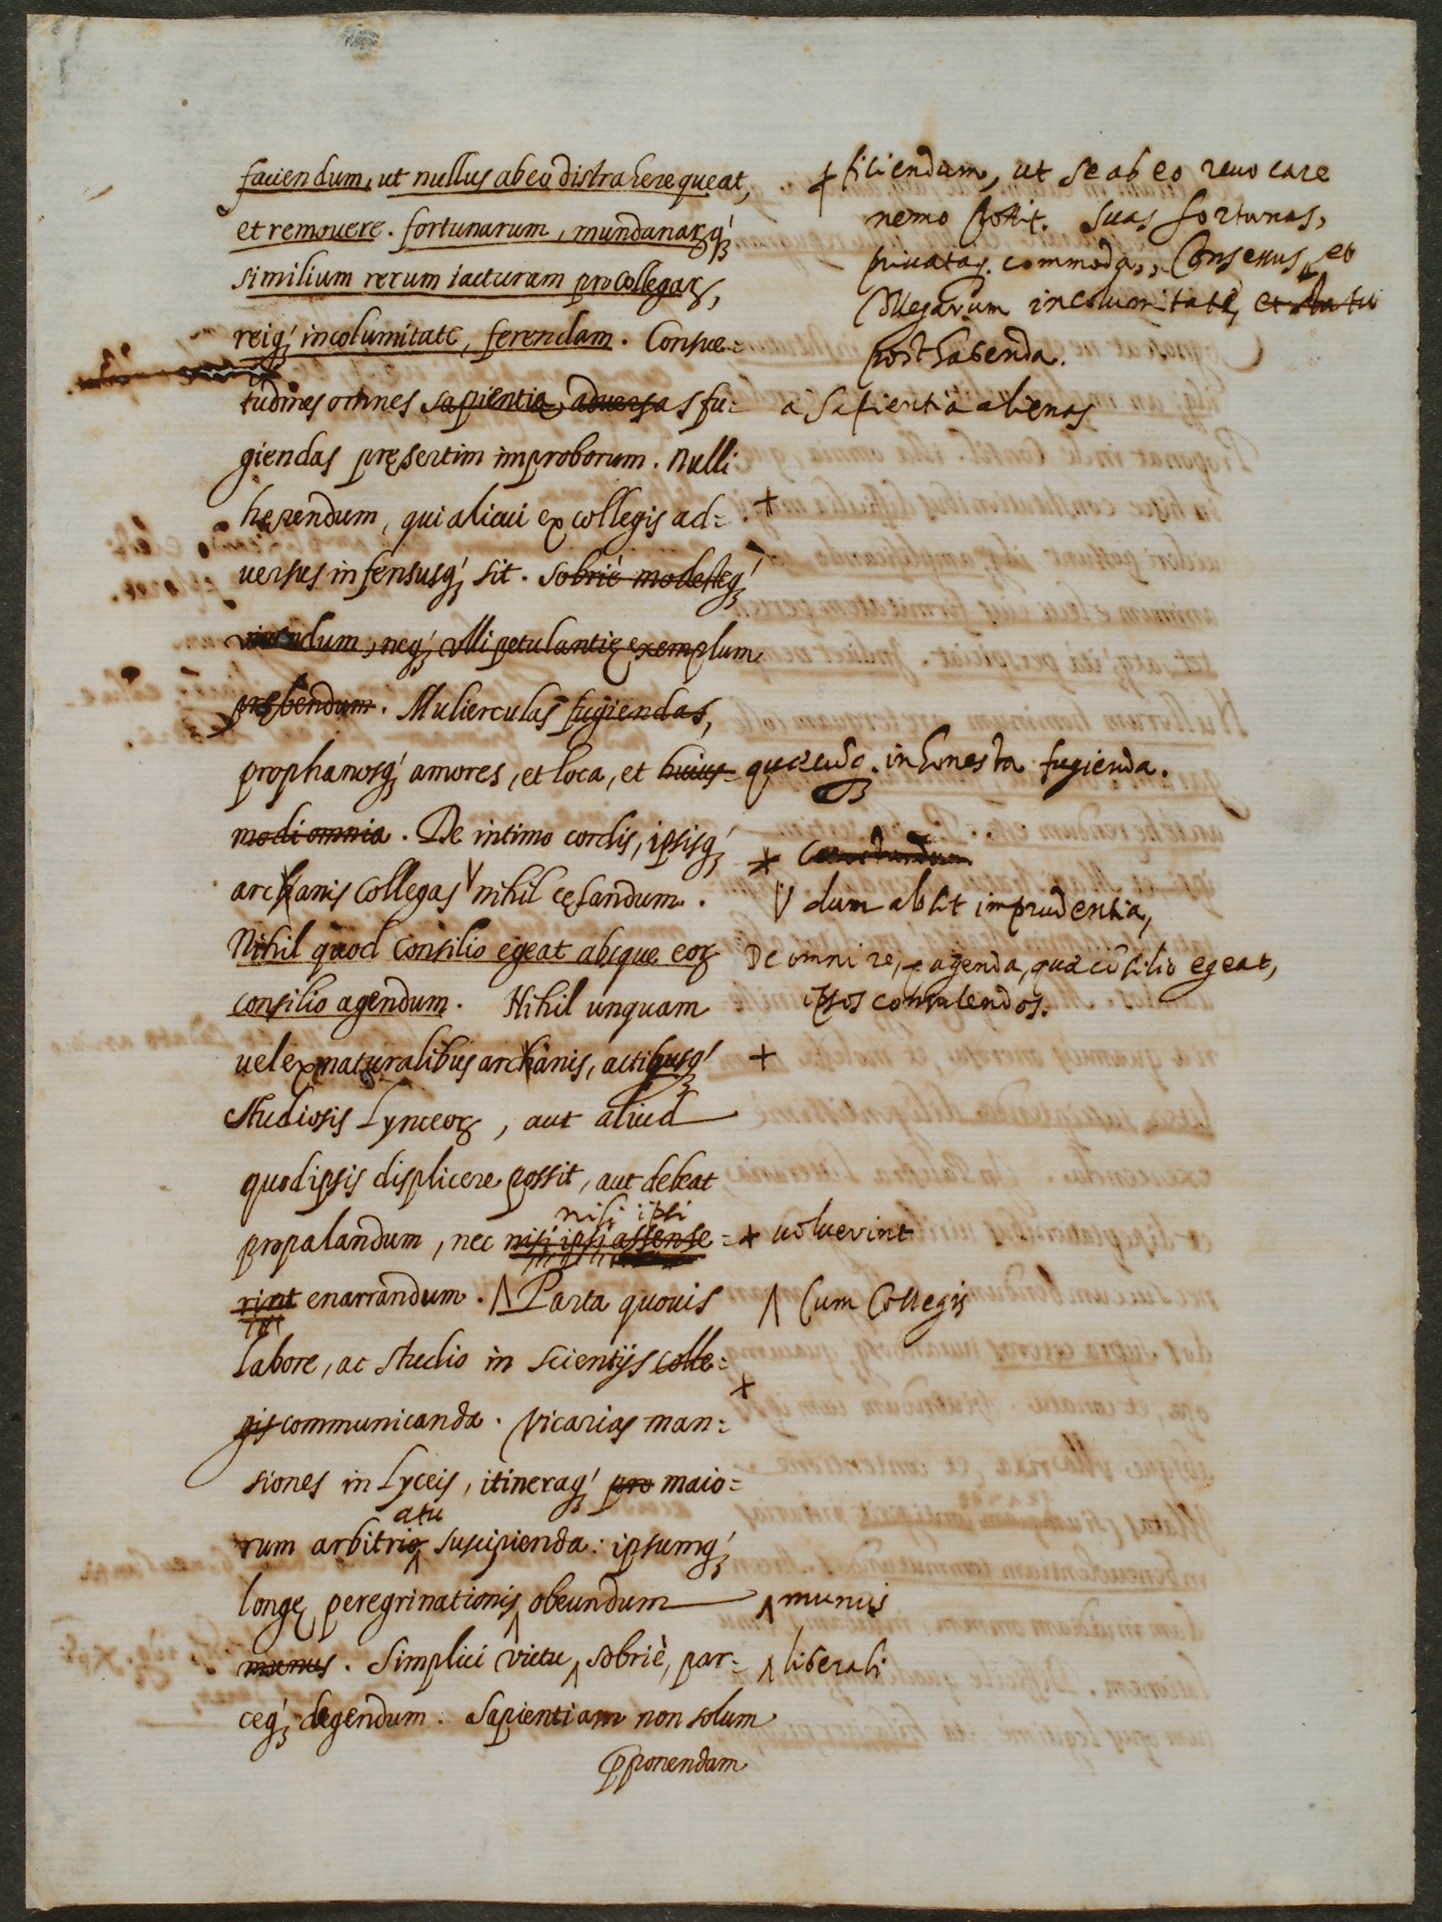 faciendum, ut nullus ab eo distrahere queat,
et remouere. fortunarum, mundanarq́ꝫ
similium rerum iacturam pro Collegarꝝ,
reiq́ꝫ incolumitate, ferendam. Consue=
tudines omnes sapientia, adversas fu=
giendas pręsertim improborum. Nulli
herendum, qui alicui ex collegis ad=
uersus infensusq́ꝫ sit. sobriè modesteq́ꝫ
viuendum, neq́ꝫ vlli petulantię exemplum
prębendum. Mulierculas fugiendas,
prophanosq́ꝫ amores, et loca, et huius=
modi omnia. De intimo cordis, ipsisq́ꝫ
archanis Collegas nihil celandum.
Nihil quod Consilio egeat absque eoꝝ
consilio agendum. Nihil unquam
uel ex naturalibus archanis, actibusq́ꝫ
studiosis Lynceoꝝ, aut aliud
quod ipsis displicere possit, aut debeat
nisi ipsi
propalandum, nec nisi ipsi assense=
rint enarrandum. Parta quouis
labore, ac studio in scientijs colle=
gis communicanda. Vicarias man=
siones in Lyceis, itineraq́ꝫ pro maio=
atu
rum arbitrio suscipienda: ipsumq́ꝫ
longę peregrinationis obeundum
munus. Simplici victu, sobriè, par=
ceq́ꝫ degendum. Sapientiam non solum
ꝓponendam
ficiendum, ut se ab eo reuocare
nemo possit. suas fortunas,
priuataq. commoda, Consensus, et
Collegarum incolumitati, et statui
posthabenda.
a sapientia alienas
quaecũq. inhonesta fugienda.
dum absit imprudentia,
De omni re, agenda, quae cõsilio egeat,
ipsos consulendos.
+
+ uoluerint
Λ Cum Collegis
+
Λ muniis
Λ liberali